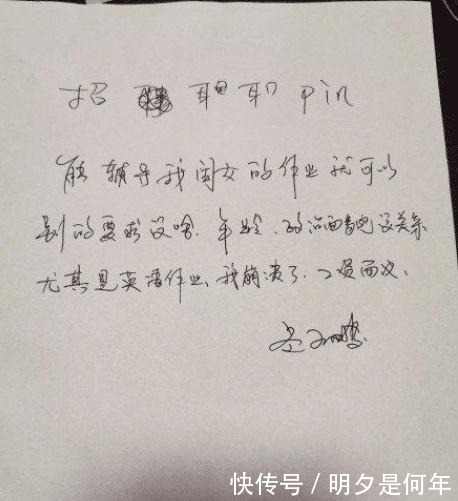 招 耳 职 Pin
能辅导我闺女的作业就可以
别的要求没啥.年龄、政治面貌都没关系
尤其是英语作业、我崩溃了.工资面议、
快传号 / 明夕是何年